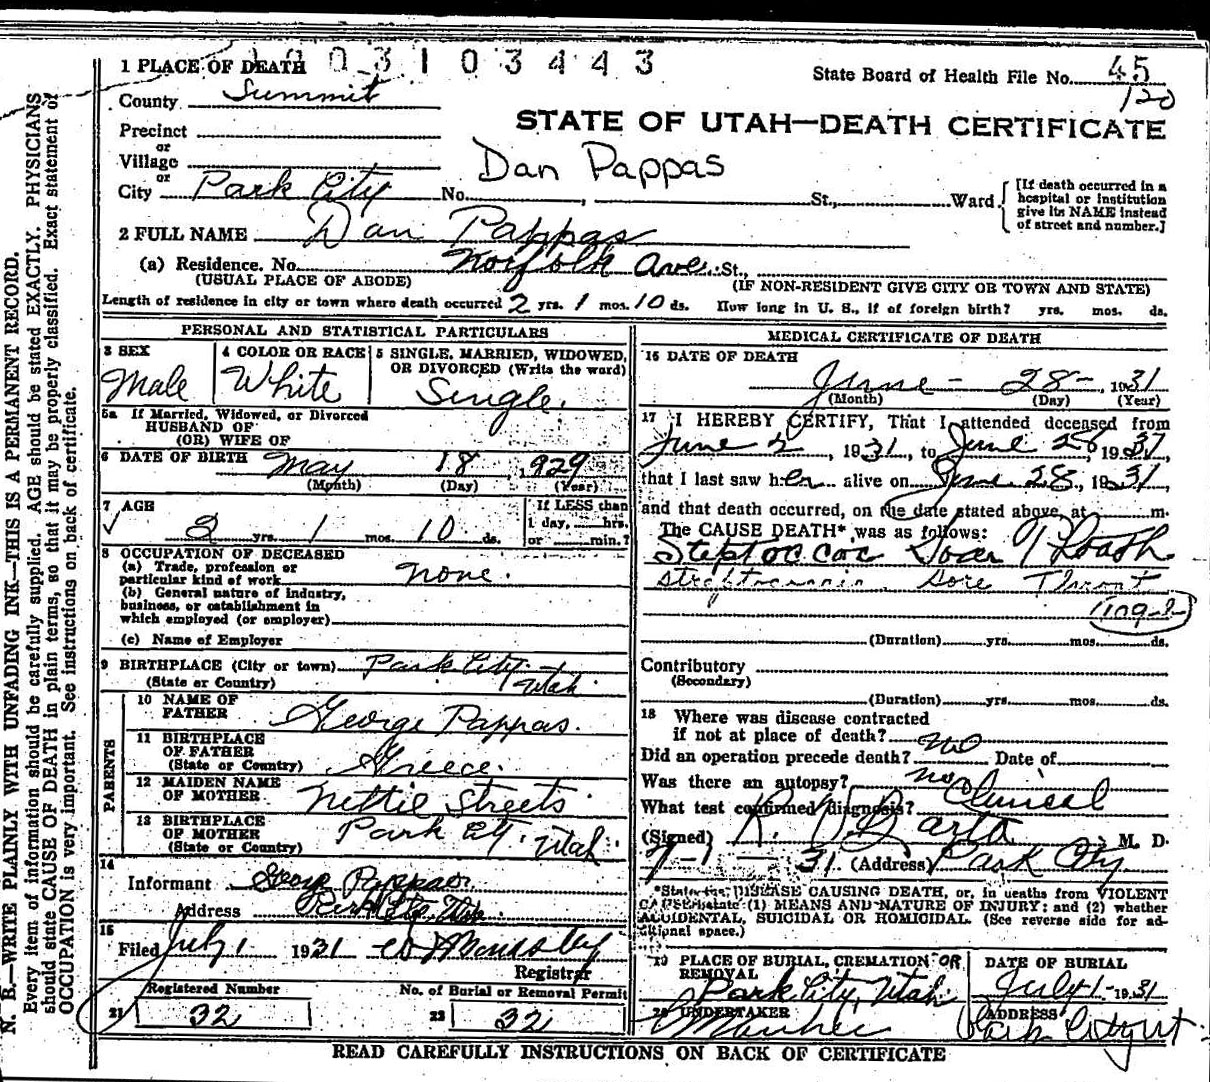 1003103443
1 PLACE OF DEATH
State Board of Health File No. 45
120
County Summit
STATE OF UTAH—DEATH CERTIFICATE
Precinct
or
Village
Dan Pappas
or
City Park City No. , St., Ward
[If death occurred in a
hospital or institution
give its NAME instead
of street and number.]
2 FULL NAME Dan Pappas
(a) Residence. No. Norfolk Ave. St.,
(USUAL PLACE OF ABODE) (IF NON-RESIDENT GIVE CITY OR TOWN AND STATE)
Length of residence in city or town where death occurred 2 yrs. 1 mos. 10 ds. How long in U. S., if of foreign birth? yrs. mos. ds.
PERSONAL AND STATISTICAL PARTICULARS
3 SEX
Male
4 COLOR OR RACE
White
5 SINGLE, MARRIED, WIDOWED,
OR DIVORCED (Write the word)
Single.
5a If Married, Widowed, or Divorced
HUSBAND OF
(OR) WIFE OF
6 DATE OF BIRTH May 18 929
(Month) (Day) (Year)
7 AGE
2 yrs. 1 mos. 10 ds.
If LESS than
1 day, hrs.
or min.?
8 OCCUPATION OF DECEASED
(a) Trade, profession or
particular kind of work none.
(b) General nature of industry,
business, or establishment in
which employed (or employer)
(c) Name of Employer
9 BIRTHPLACE (City or town) Park City
(State or Country) Utah
PARENTS
10 NAME OF
FATHER George Pappas.
11 BIRTHPLACE
OF FATHER
(State or Country) Greece.
12 MAIDEN NAME
OF MOTHER Nettie Streets
13 BIRTHPLACE
OF MOTHER Park City. Utah.
(State or Country)
14
Informant George Pappas
Address Park City, Utah
15
Filed July 1 1931
Registrar
Registered Number
21 32
No. of Burial or Removal Permit
22 32
MEDICAL CERTIFICATE OF DEATH
16 DATE OF DEATH
June - 28 - , 1931
(Month) (Day) (Year)
17 I HEREBY CERTIFY, That I attended deceased from
June 2, 1931, to June 28, 1931,
that I last saw h alive on June 28., 1931,
and that death occurred, on the date stated above, at m.
The CAUSE DEATH* was as follows:
Sore Throat
(Duration) yrs. mos. ds.
Contributory
(Secondary)
(Duration) yrs. mos. ds.
18 Where was disease contracted
if not at place of death?
Did an operation precede death? no Date of
Was there an autopsy? no
What test confirmed diagnosis? Clinical
(Signed) M. D.
7-1-31 (Address) Park City.
*State the DISEASE CAUSING DEATH, or, in deaths from VIOLENT
CAUSES state (1) MEANS AND NATURE OF INJURY; and (2) whether
ACCIDENTAL, SUICIDAL OR HOMICIDAL. (See reverse side for ad-
ditional space.)
19 PLACE OF BURIAL, CREMATION OR
REMOVAL
Park City, Utah
DATE OF BURIAL
July 1 - 1931
20 UNDERTAKER
ADDRESS
Park City Ut.
READ CAREFULLY INSTRUCTIONS ON BACK OF CERTIFICATE
N. B.—WRITE PLAINLY WITH UNFADING INK—THIS IS A PERMANENT RECORD.
Every item of information should be carefully supplied. AGE should be stated EXACTLY. PHYSICIANS
should state CAUSE OF DEATH in plain terms, so that it may be properly classified. Exact statement of
OCCUPATION is very important. See instructions on back of certificate.